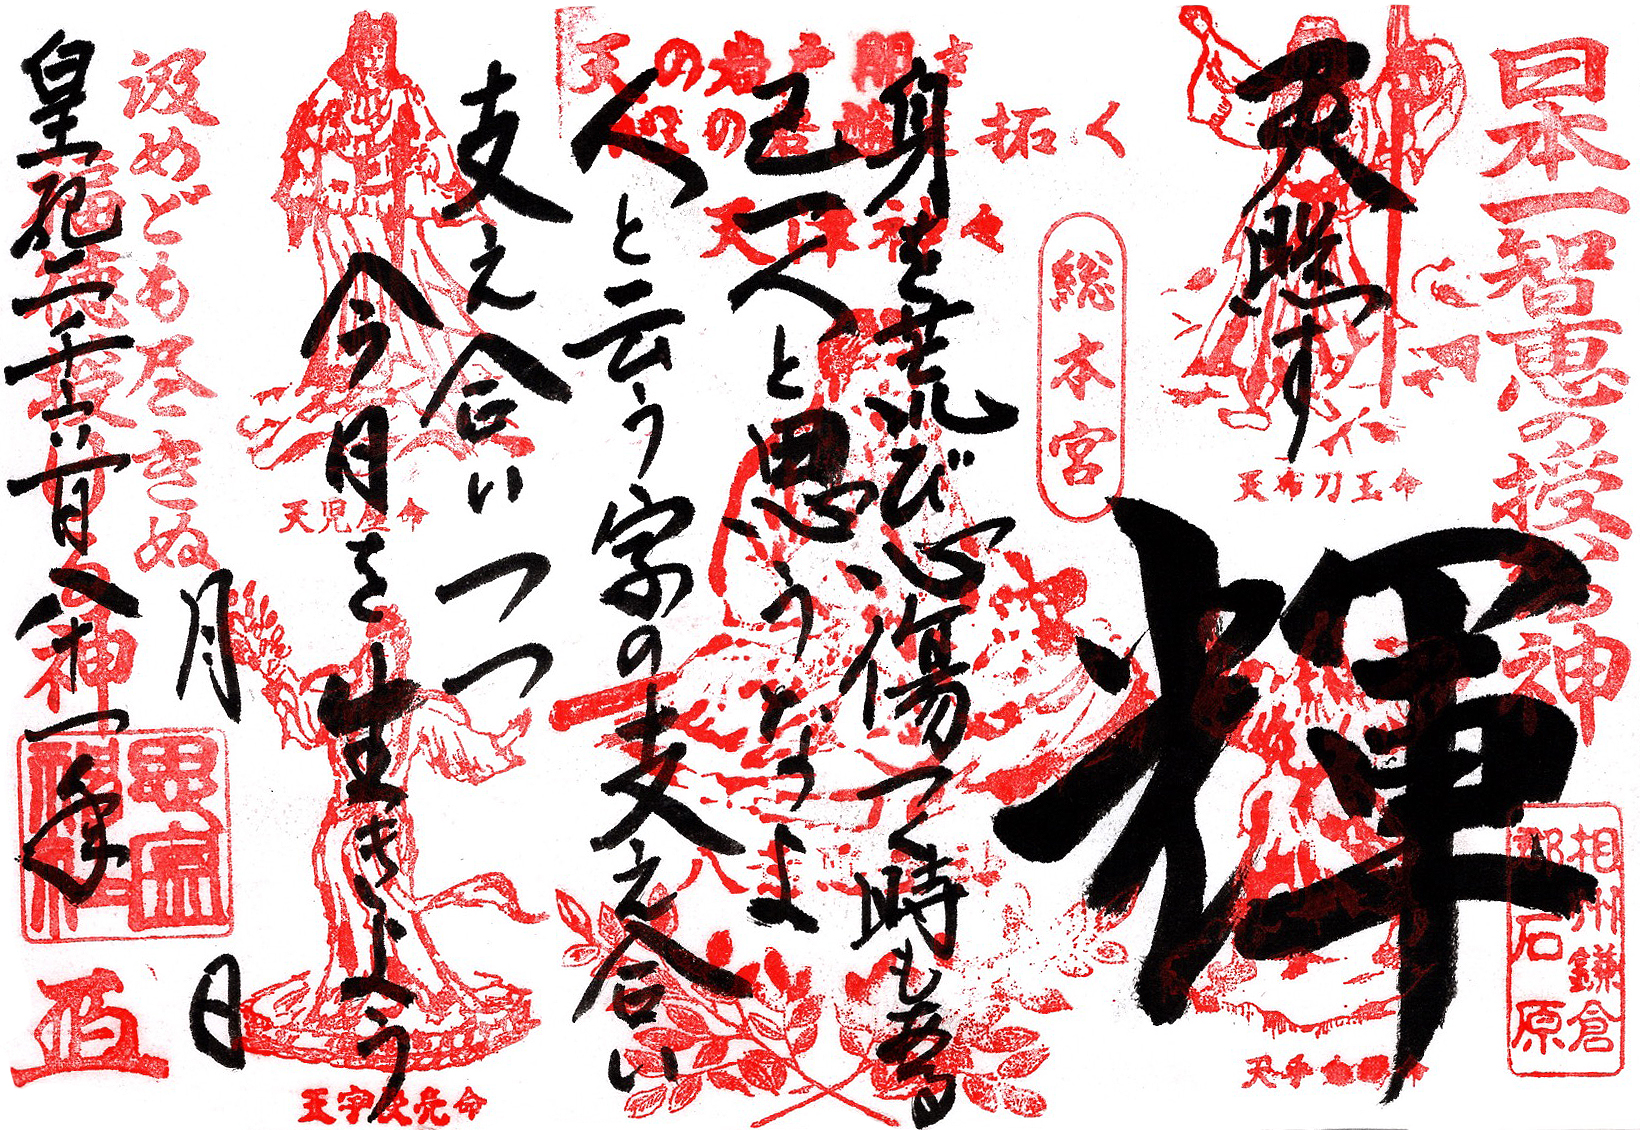 日本一智恵の授かる神
相州鎌倉
郡石原
天照す
輝
天布刀玉命
総本宮
天の岩戸開き
拓く
身を荒び心傷つく時も有る
己一人と思うなよ
人と云う字の支え合い
支え合いつつ
今月を生きよう
天児屋命
天宇受売命
汲めども尽きぬ
月
日
福徳授かる神
皇紀二千六百八十一年
思金
神社